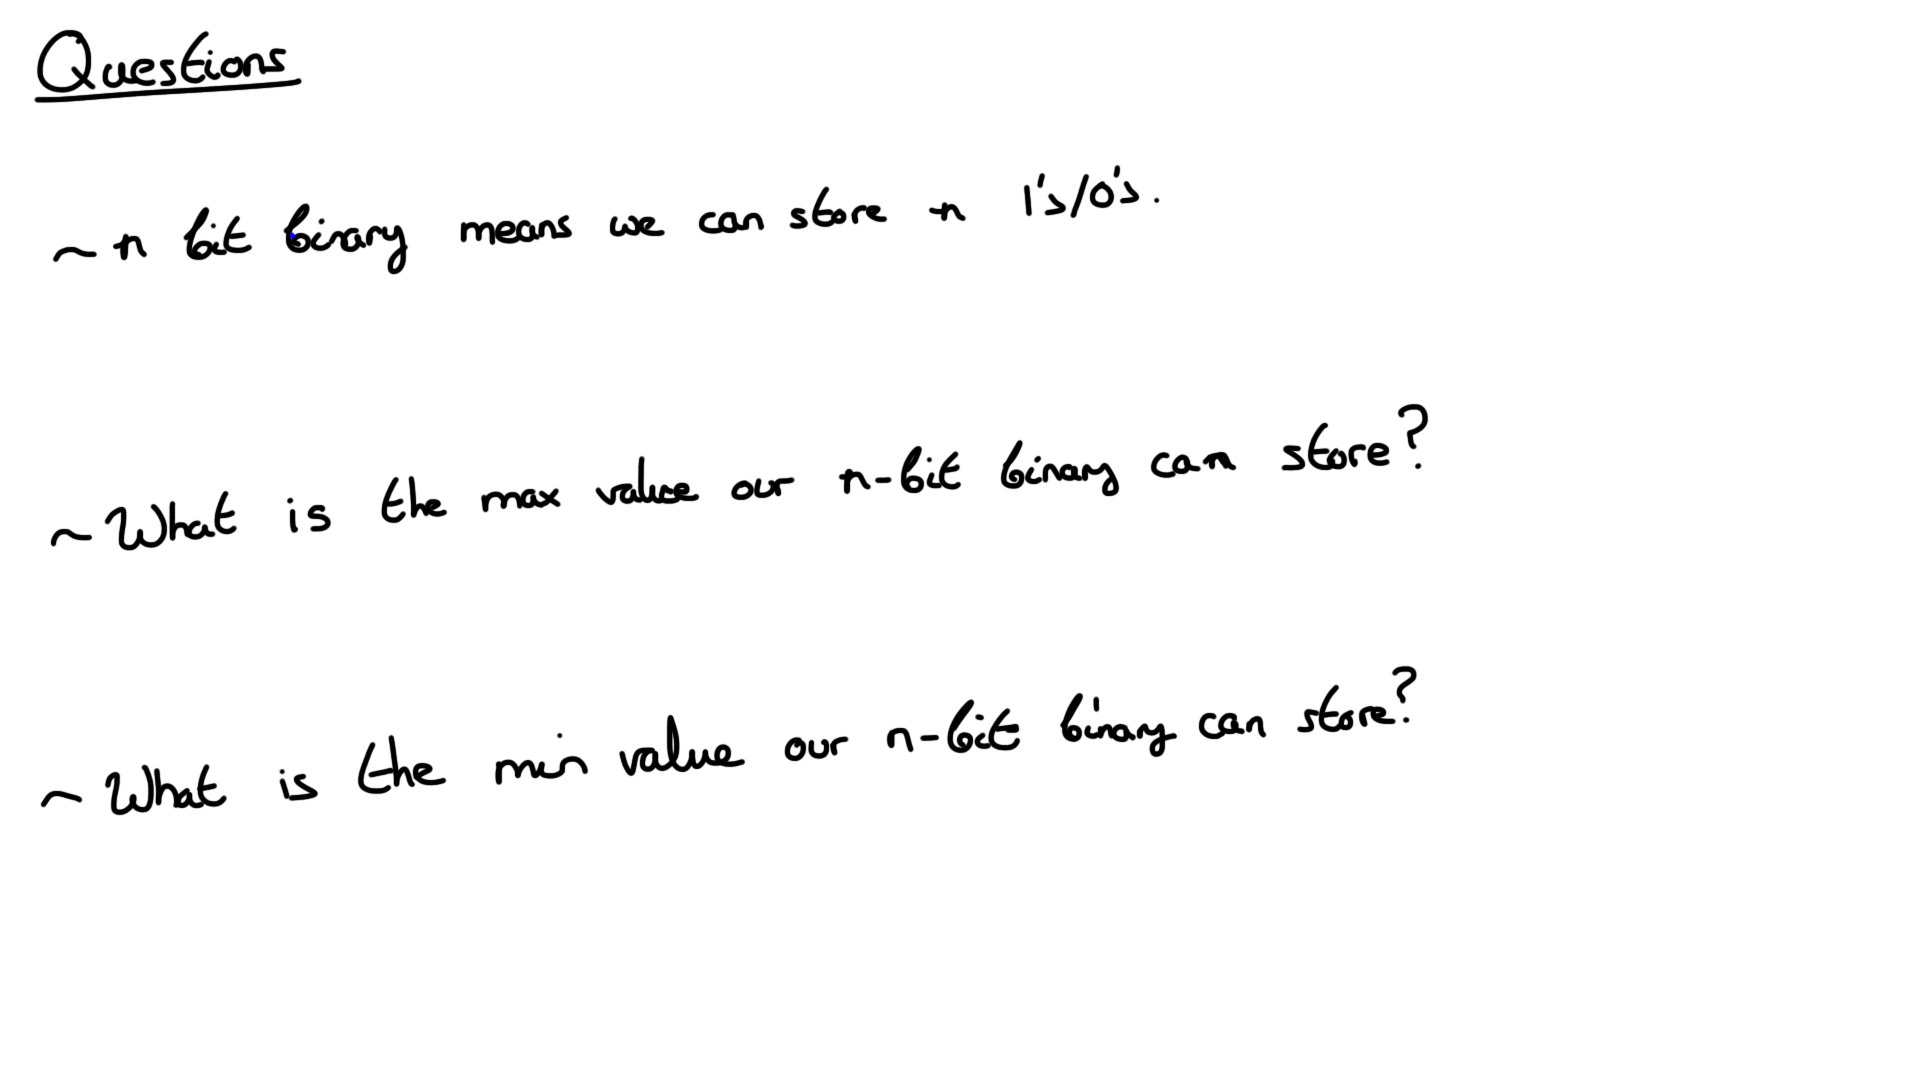 Questions
~ n bit binary means we can store n 1's/0's.
~ What is the max value our n-bit binary can store?
~ What is the min value our n-bit binary can store?